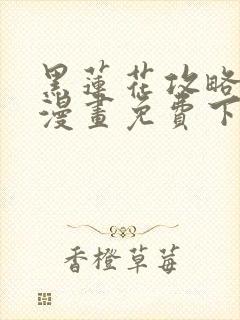 黑蓮花攻略
漫畫免費下
香橙草莓